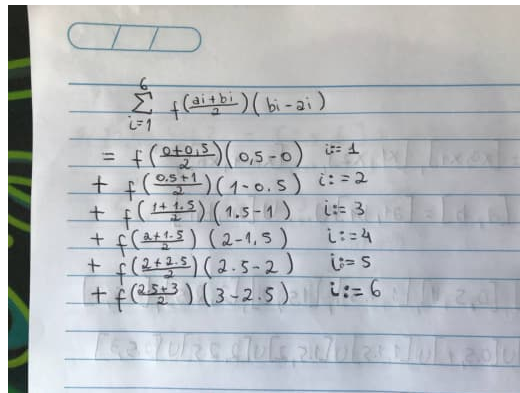 6
Σ f(ai+bi/2)(bi-ai)
i=1
= f(0+0,5/2)(0,5-0) i:= 1
+ f(0.5+1/2)(1-0.5) i:=2
+ f(1+1.5/2)(1.5-1) i:= 3
+ f(2+1.5/2)(2-1,5) i:=4
+ f(2+2.5/2)(2.5-2) i:= 5
+ f(2.5+3/2)(3-2.5) i:= 6